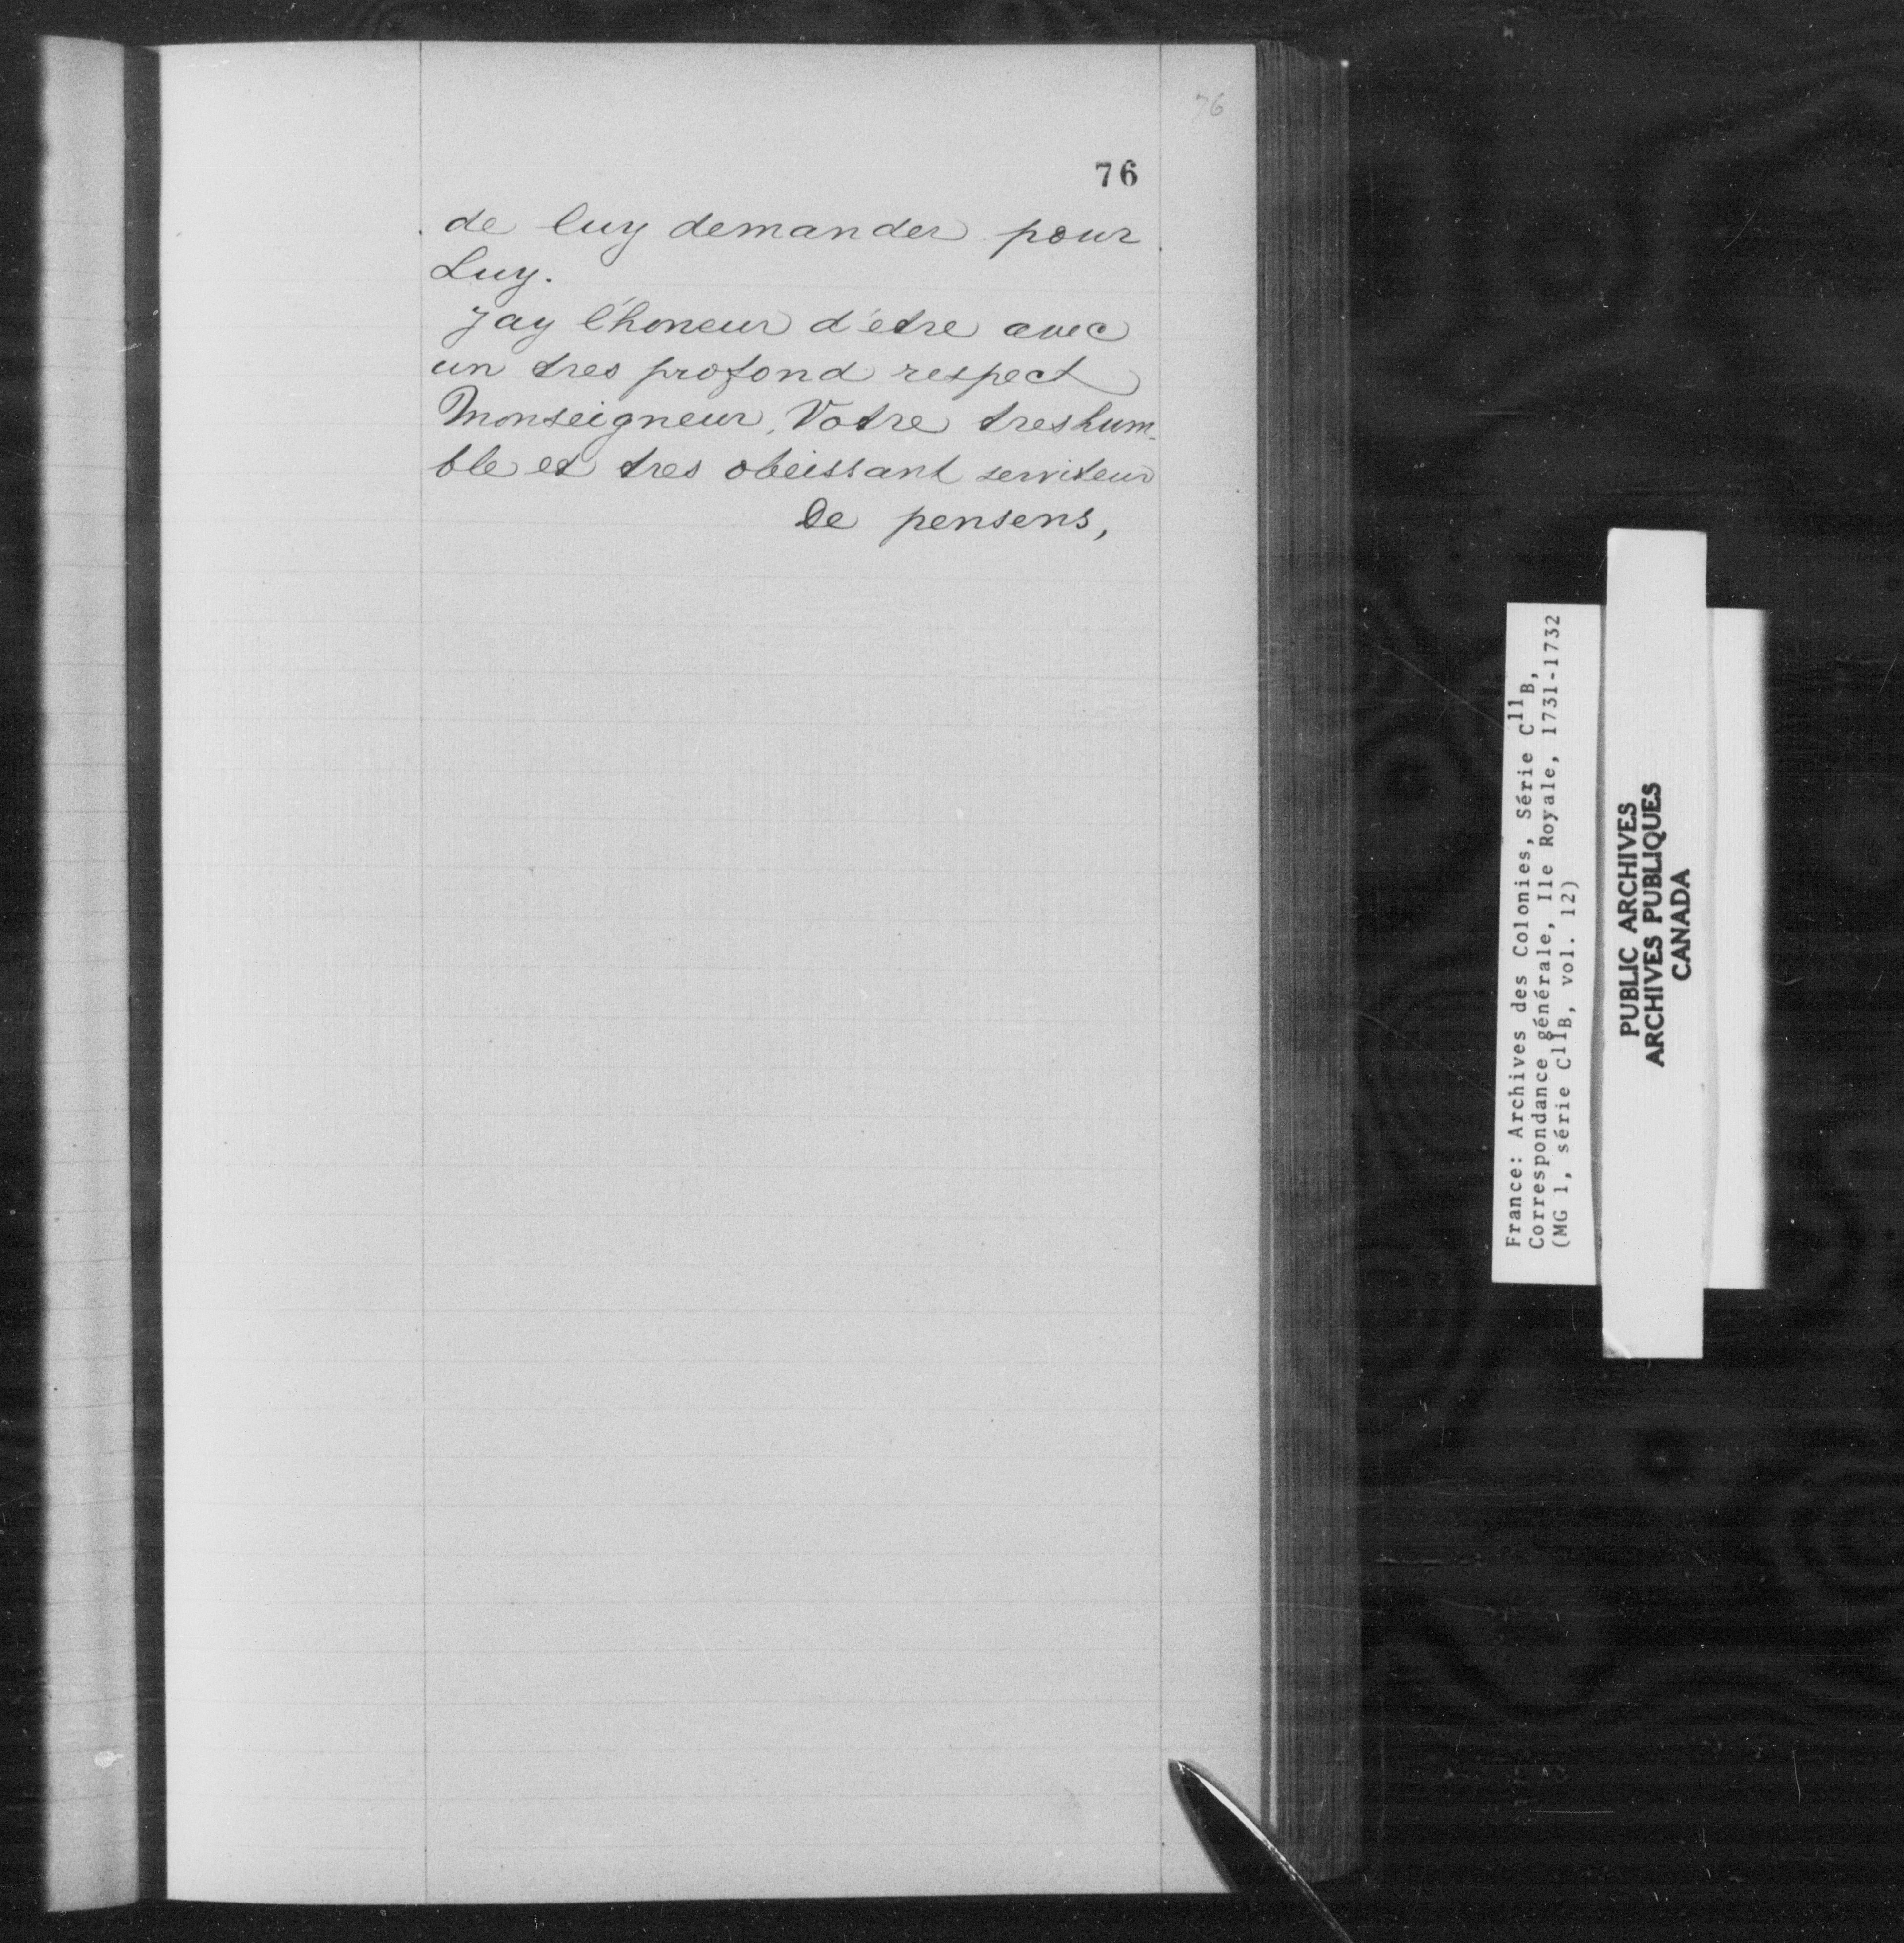 76
76
de luy demander pour
Luy.
Jay l'honeur d'etre avec
un tres profond respect
Monseigneur, Votre treshum-
ble et tres obeissant serviteur
De pensens,
France: Archives des Colonies, Série C11B,
Correspondance générale, Ile Royale, 1731-1732
(MG 1, série C11B, vol. 12)
PUBLIC ARCHIVES
ARCHIVES PUBLIQUES
CANADA